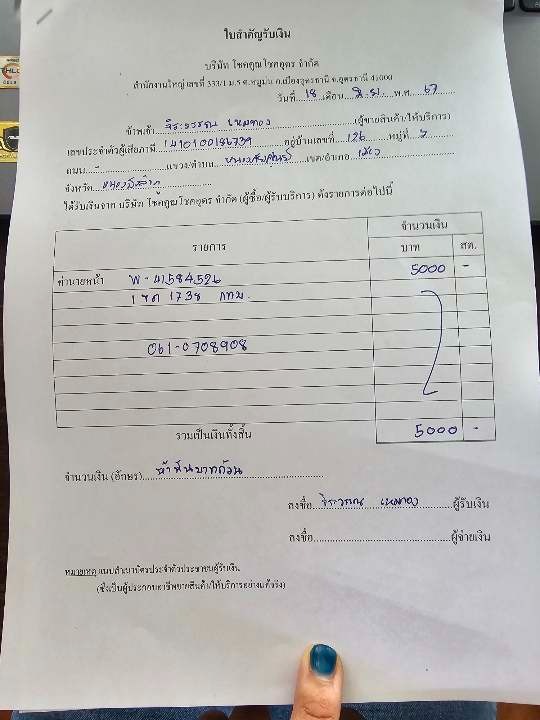 ใบสำคัญรับเงิน
บริษัท โชคคูณโชคอุดร จำกัด
สำนักงานใหญ่ เลขที่ 333/1 ม.5 ต.หมูม่น อ.เมืองอุดรธานี จ.อุดรธานี 41000
วันที่ 18 เดือน มิ.ย. พ.ศ. 67
ข้าพเจ้า จิระวรรณ เหมทอง (ผู้ขายสินค้า/ให้บริการ)
เลขประจำตัวผู้เสียภาษี อยู่บ้านเลขที่ 126 หมู่ที่
ถนน - แขวง/ตำบล เขต/อำเภอ เมือง
จังหวัด หนองบัวลำภู
ได้รับเงินจาก บริษัท โชคคูณโชคอุดร จำกัด (ผู้ซื้อ/ผู้รับบริการ) ดังรายการต่อไปนี้
รายการ จำนวนเงิน
บาท สต.
ค่านายหน้า W-41584526 5000 -
1738 กทม.
061-0708908
รวมเป็นเงินทั้งสิ้น 5000 -
จำนวนเงิน (อักษร) ห้าพันบาทถ้วน
ลงชื่อ จิระวรรณ เหมทอง ผู้รับเงิน
ลงชื่อ ผู้จ่ายเงิน
หมายเหตุ แนบสำเนาบัตรประจำตัวประชาชนผู้รับเงิน
(ซึ่งเป็นผู้ประกอบอาชีพขายสินค้า/ให้บริการอย่างแท้จริง)